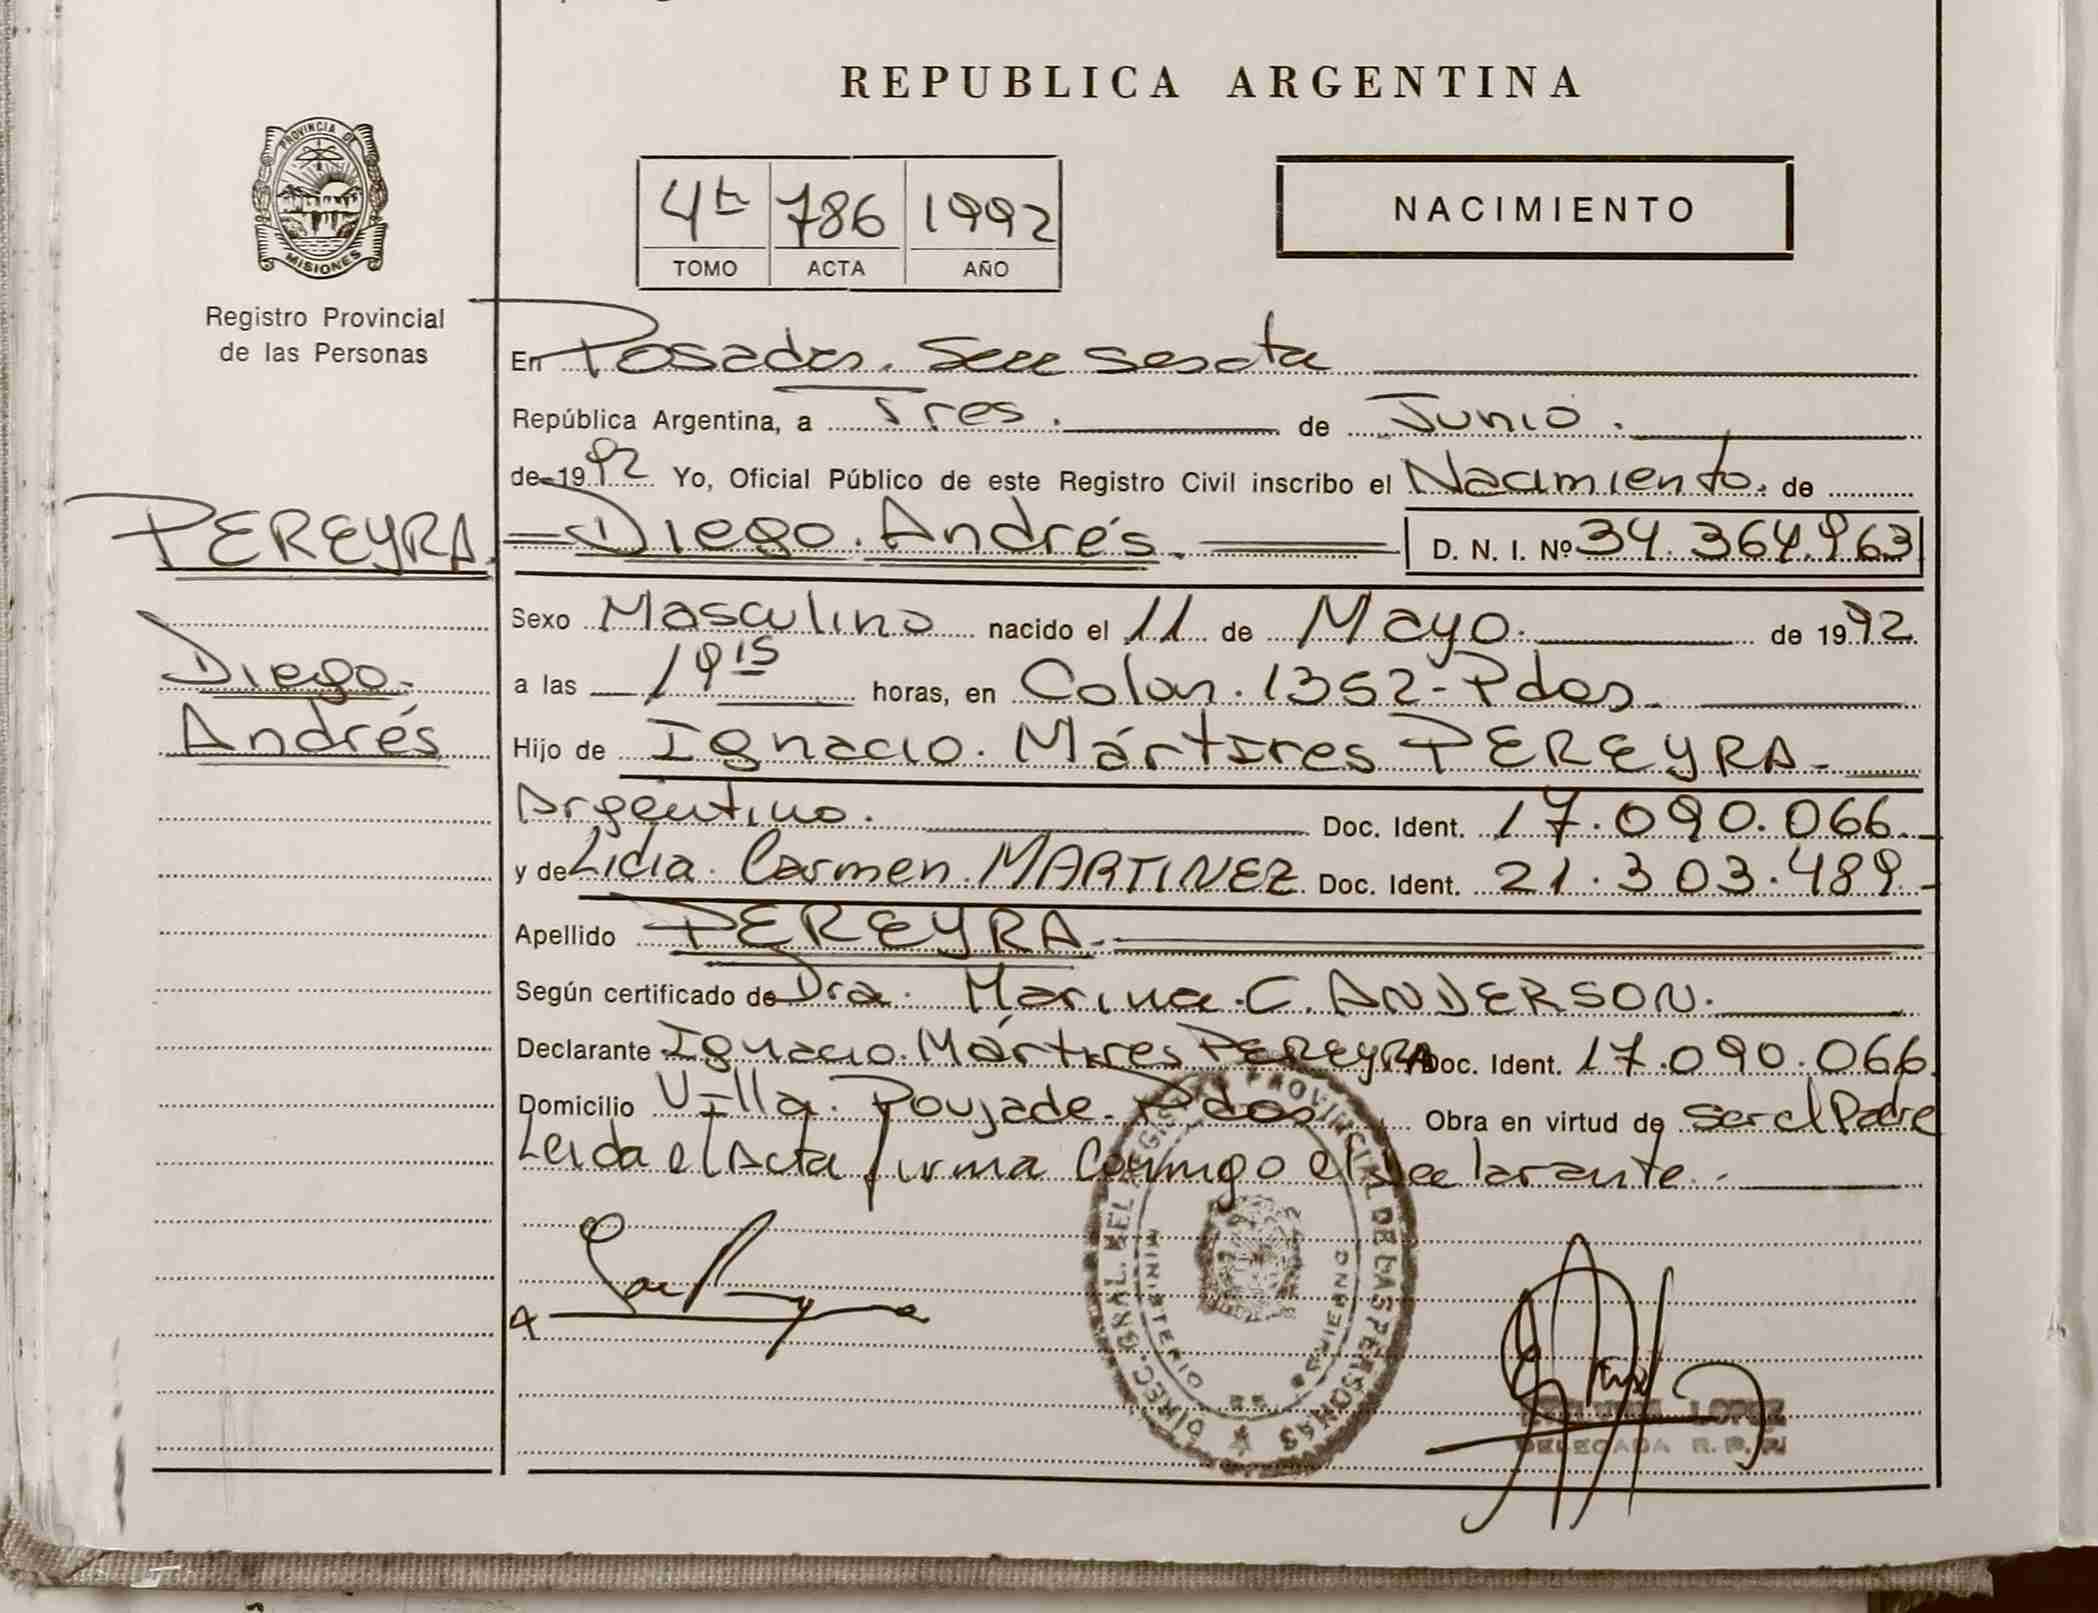 REPUBLICA ARGENTINA
PROVINCIA DE
MISIONES
Registro Provincial
de las Personas
4t 786 1992
TOMO ACTA AÑO
NACIMIENTO
En Posadas. Secc sexta
República Argentina, a Tres. de Junio.
de 1992 Yo, Oficial Público de este Registro Civil inscribo el Nacimiento. de
PEREYRA
Diego.
Andrés
Diego. Andrés. D. N. I. Nº 34.364.963
Sexo Masculino nacido el 11 de Mayo. de 1992
a las 19 15 horas, en Colon. 1352-Pdas.
Hijo de Ignacio. Mártires PEREYRA
Argentino. Doc. Ident. 17.090.066.
y de Lidia. Carmen. MARTINEZ Doc. Ident. 21.303.489.
Apellido PEREYRA
Según certificado de Dra. Marina.C. ANDERSON.
Declarante Ignacio. Mártires PEREYRA Doc. Ident. 17.090.066
Domicilio Villa. Poujade. Pdas Obra en virtud de ser el Padre
Leida el Acta firma conmigo el declarante.
DIREC. GRAL. DEL REGISTRO PROVINCIAL DE LAS PERSONAS
MINISTERIO GOBIERNO
LOPEZ
DELEGADA R. P. P.